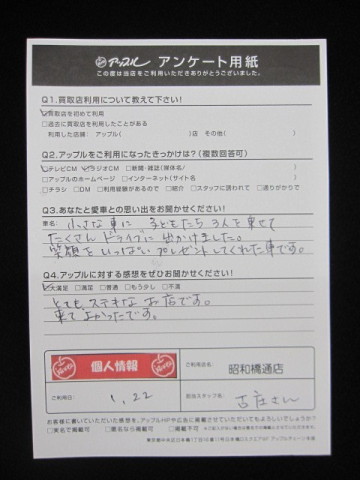 アップル アンケート用紙
この度は当店をご利用いただきありがとうございました。
Q1.買取店利用について教えて下さい!
□買取店を初めて利用
□過去に買取店を利用したことがある
利用した店舗: アップル( )店 その他( )
Q2.アップルをご利用になったきっかけは?(複数回答可)
□テレビCM □ラジオCM □新聞・雑誌(媒体名/ )
□アップルのホームページ □インターネット(サイト名 )
□チラシ □DM □利用経験があるので □紹介 □スタッフに誘われて □通りがかりで
Q3.あなたと愛車との思い出をお聞かせください!
車名: 小さな車に 子どもたち3人を乗せて
たくさん ドライブに 出かけました。
笑顔を いっぱい プレゼントしてくれた車です。
Q4.アップルに対する感想をぜひお聞かせください!
□大満足 □満足 □普通 □もう少し □不満
とても、ステキな お店です。
来て よかったです。
個人情報
ご利用店名: 昭和橋通店
ご利用日: 1.22
担当スタッフ名: 古庄さん
お客様に書いていただいた感想を、アップルHPや広告に掲載させていただいてもよろしいでしょうか?
□実名で掲載可 □匿名なら掲載可 □掲載不可